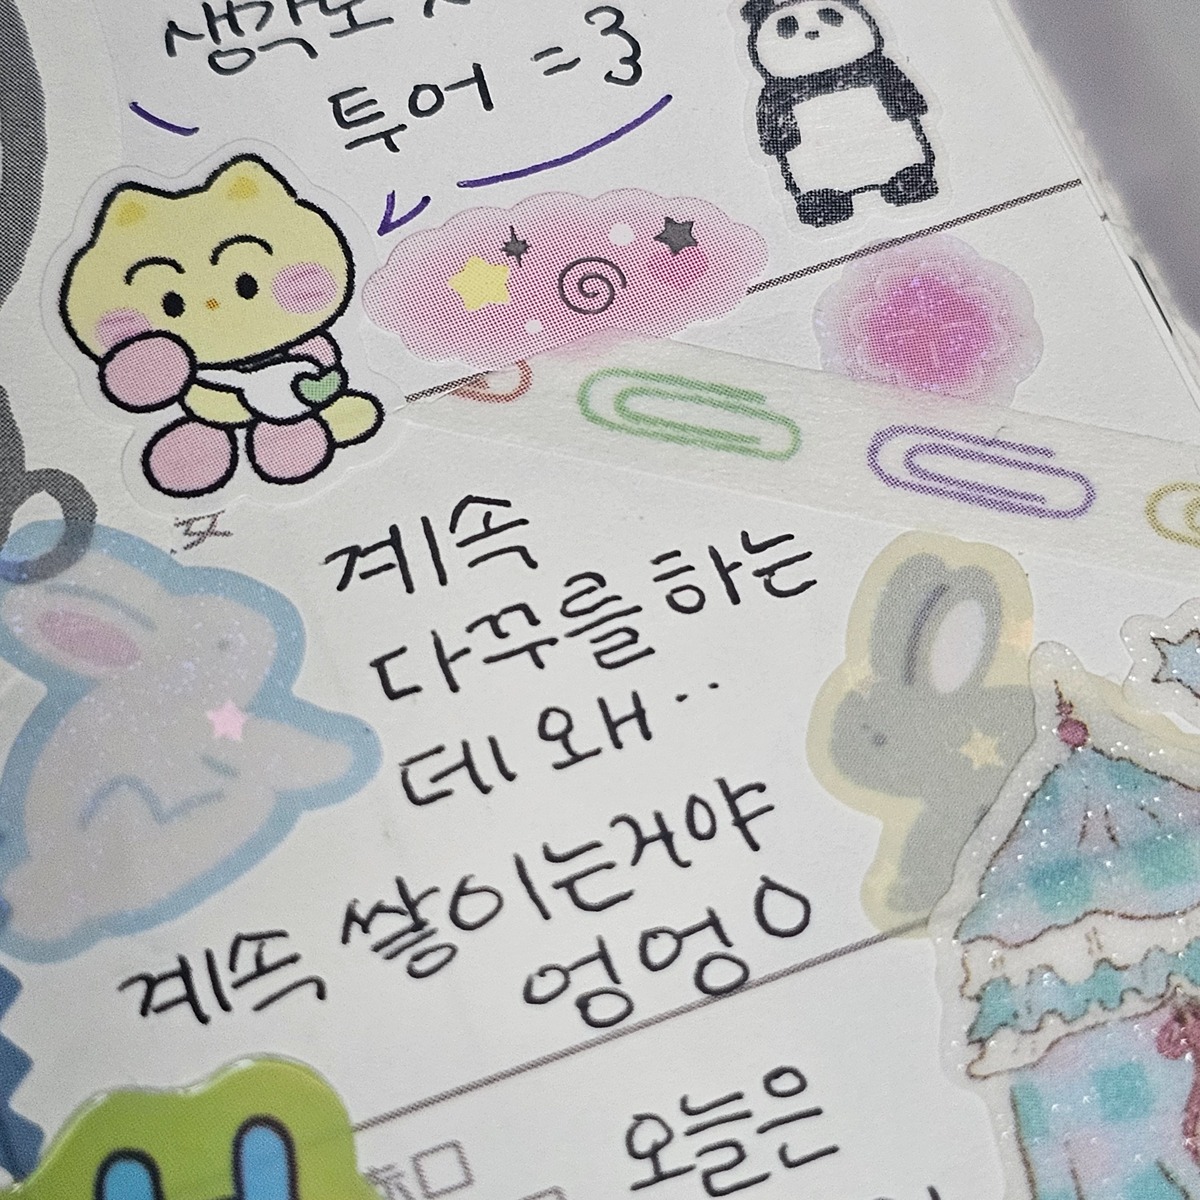 생각도
투어 =3
계속
다꾸를 하는
데 왜..
계속 쌓이는거야
엉엉ㅇ
오늘은